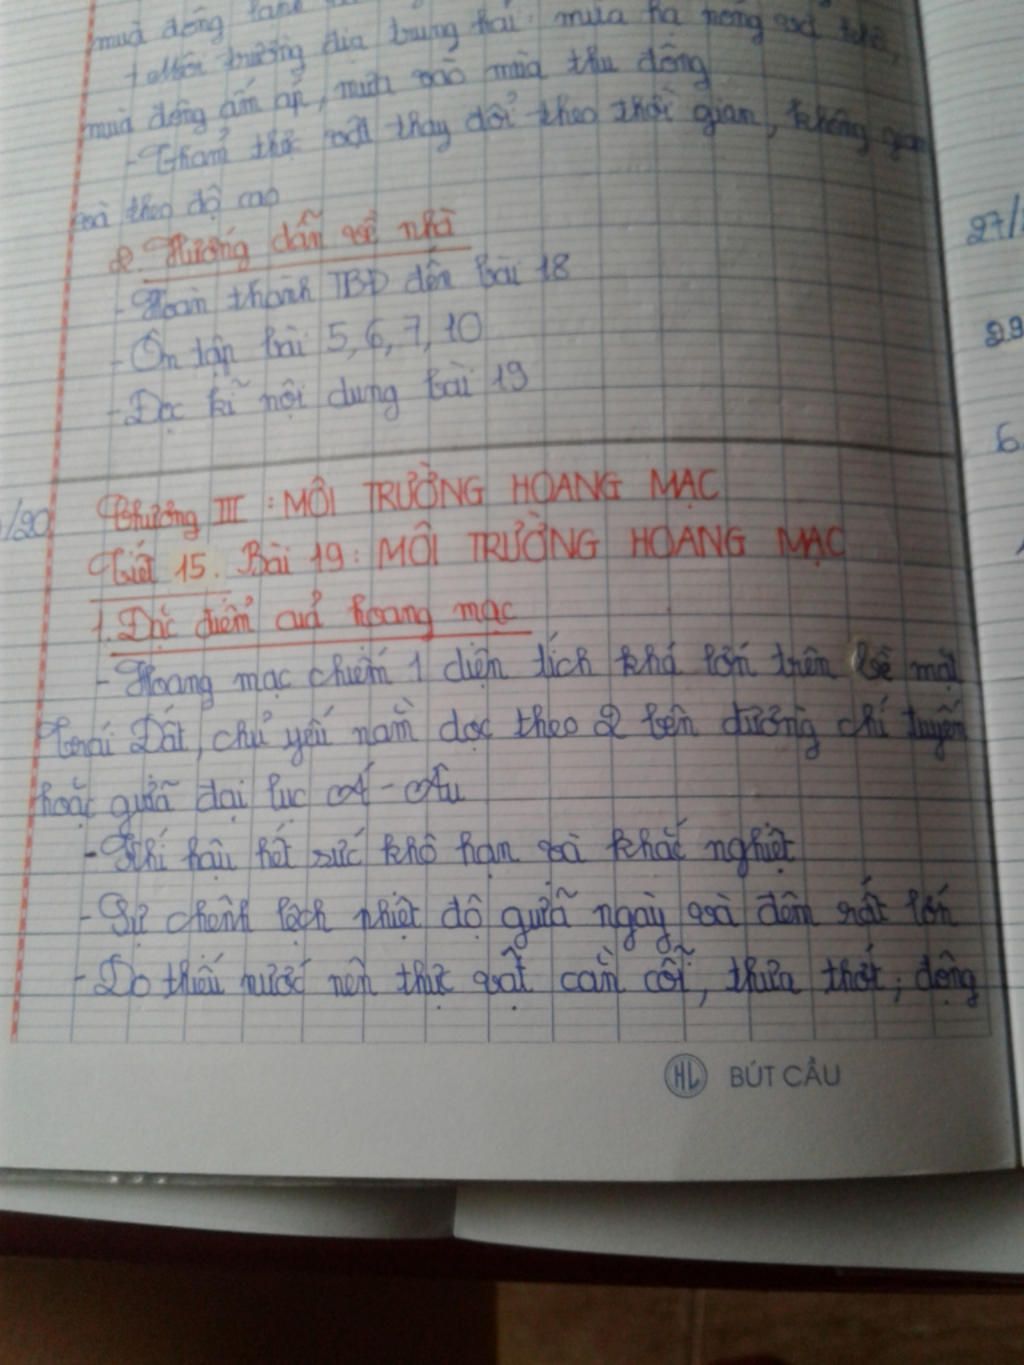 mùa đông lạnh
+ Môi trường địa trung hải: mùa hạ nóng và khô,
mùa đông ấm áp, mưa vào mùa thu đông
- Thảm thực vật thay đổi theo thời gian, không gian
và theo độ cao
Hướng dẫn về nhà
- Hoàn thành TBĐ đến bài 18
- Ôn tập bài 5, 6, 7, 10
- Đọc kĩ nội dung bài 19
27/
29
6
/20
Chương III: MÔI TRƯỜNG HOANG MẠC
Tiết 15. Bài 19: MÔI TRƯỜNG HOANG MẠC
1. Đặc điểm của hoang mạc
- Hoang mạc chiếm 1 diện tích khá lớn trên bề mặt
trái Đất, chủ yếu nằm dọc theo 2 bên đường chí tuyến
hoặc giữa đại lục Á - Âu
- Khí hậu hết sức khô hạn và khắc nghiệt
- Sự chênh lệch nhiệt độ giữa ngày và đêm rất lớn
- Do thiếu nước nên thực vật cằn cỗi, thưa thớt; động
HL BÚT CÂU